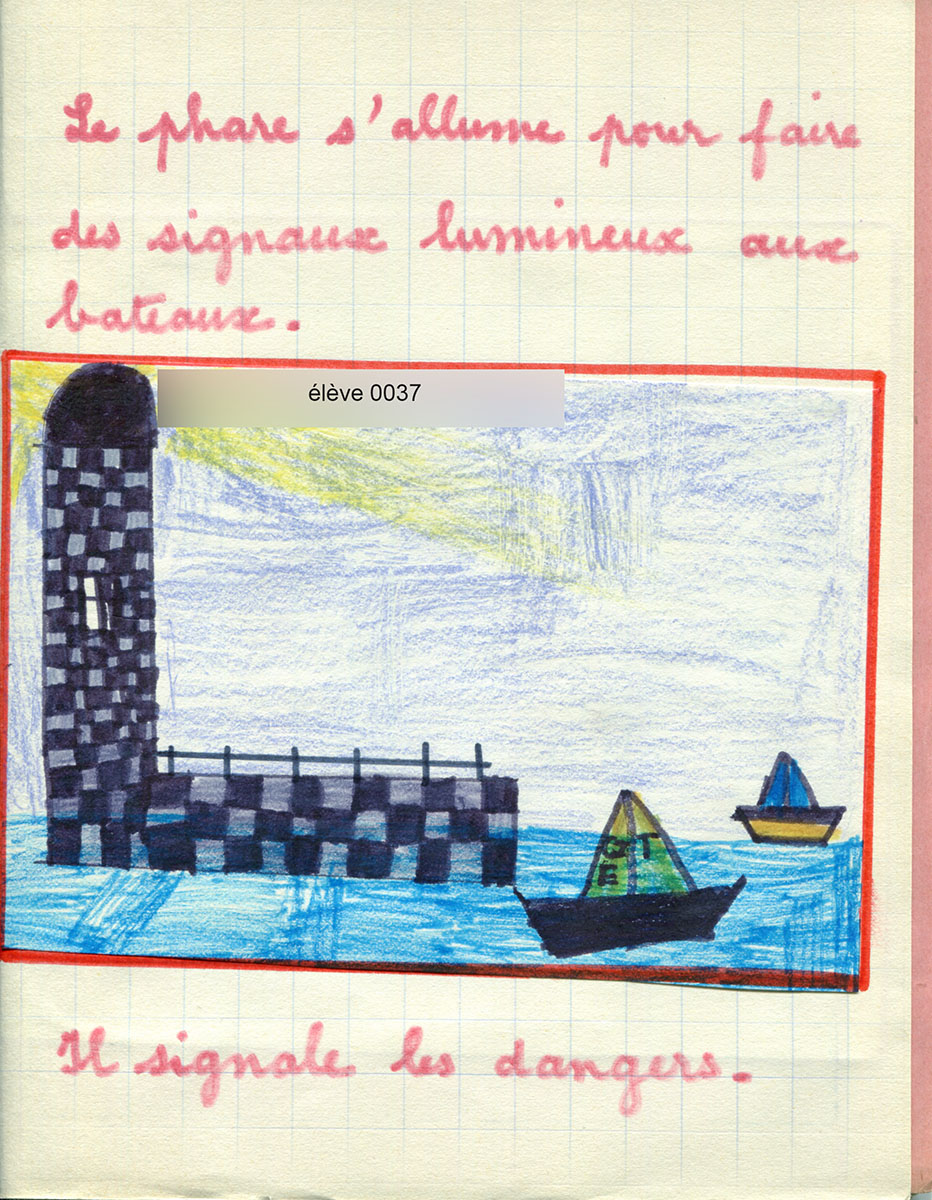 Le phare s'allume pour faire
des signaux lumineux aux
bateaux.
élève 0037
Il signale les dangers.